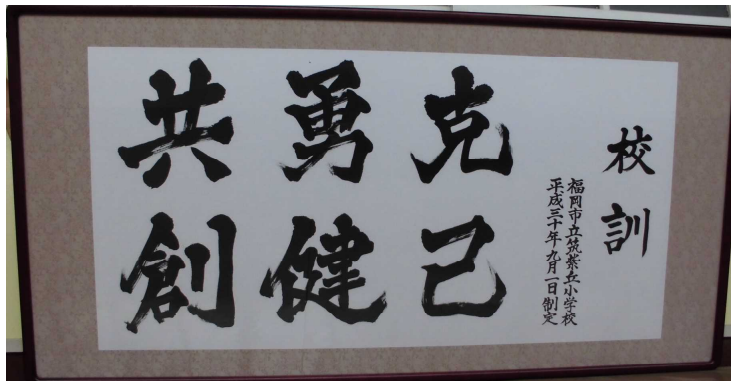 校訓
福岡市立筑紫丘小学校
平成三十年九月一日制定
克己
勇健
共創